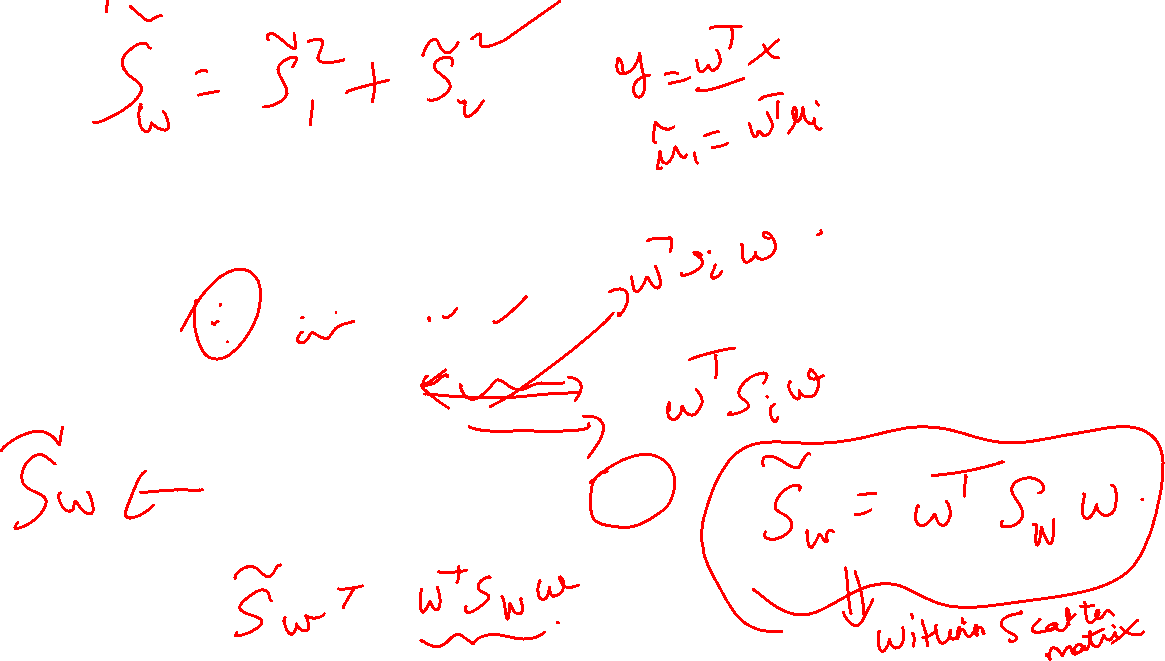 S̃_W = S̃₁² + S̃₂²
y = wᵀx
μ̃₁ = wᵀμᵢ
wᵀSᵢw
wᵀSᵢw
S̃_W ←
S̃_W = wᵀS_W w.
S̃_W = wᵀS_W w.
Within Scatter
matrix